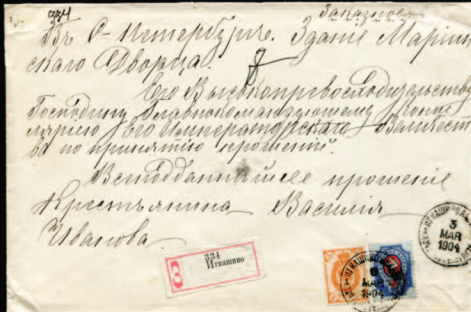 334
Заказное
Въ С-Петербургъ. Зданіе Маріин
скаго Дворца.
Его Высокопревосходительству
Господину Главнокомандующему Канце
ляріею Его Императорскаго Величест
ва по принятію прошеній.
Всеподданнѣйшее прошеніе
Крестьянина Василія
Иванова.
З
334
Игнашино
3
МАР
1904
МАР
1904